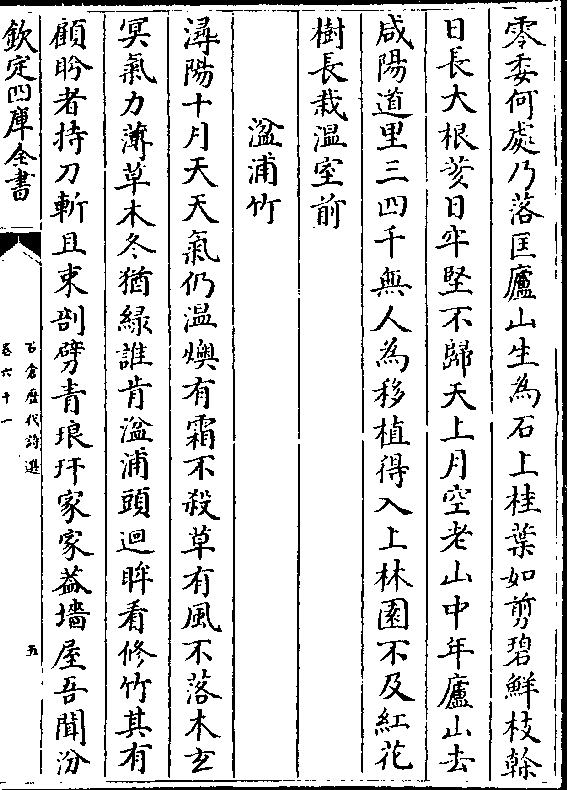 零委何處乃落匡廬山生為石上桂葉如剪碧鮮枝榦
日長大根荄日牢堅不歸天上月空老山中年廬山去
咸陽道里三四千無人為移植得入上林園不及紅花
樹長栽温室前
湓浦竹
潯陽十月天天氣仍温燠有霜不殺草有風不落木玄
冥氣力薄草木冬猶緑誰肯湓浦頭迴眸看修竹其有
顧盼者持刀斬且束剖劈青琅玕家家葢墻屋吾聞汾
欽定四庫全書
石倉歷代詩選
卷六十一
五